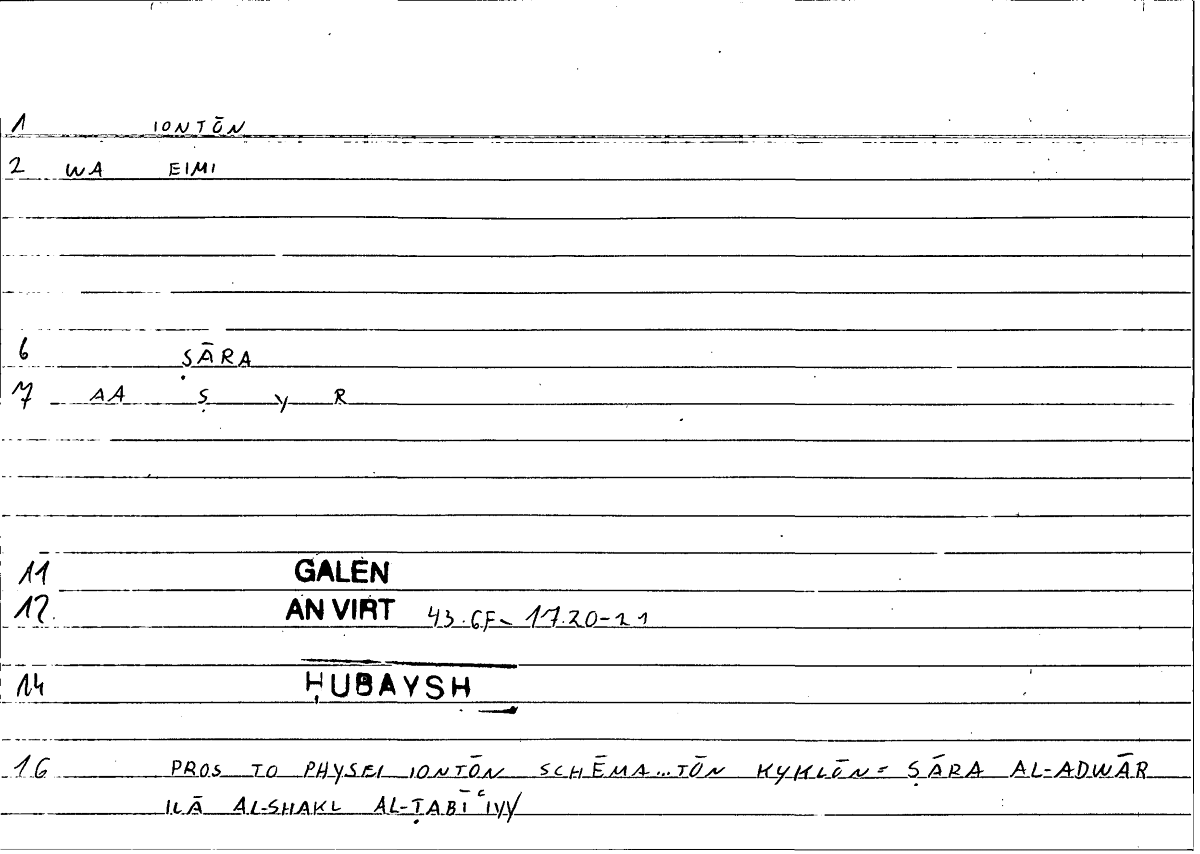 1 IONTŌN
2 WA EIMI
6 ṢĀRA
7 AA Ṣ Y R
11 GALEN
12 AN VIRT 43.6F 17.20-21
14 ḤUBAYSH
16 PROS TO PHYSEI IONTŌN SCHĒMA...TŌN KYKLŌN= ṢĀRA AL-ADWĀR
ILĀ AL-SHAKL AL-ṬABĪʿIYY